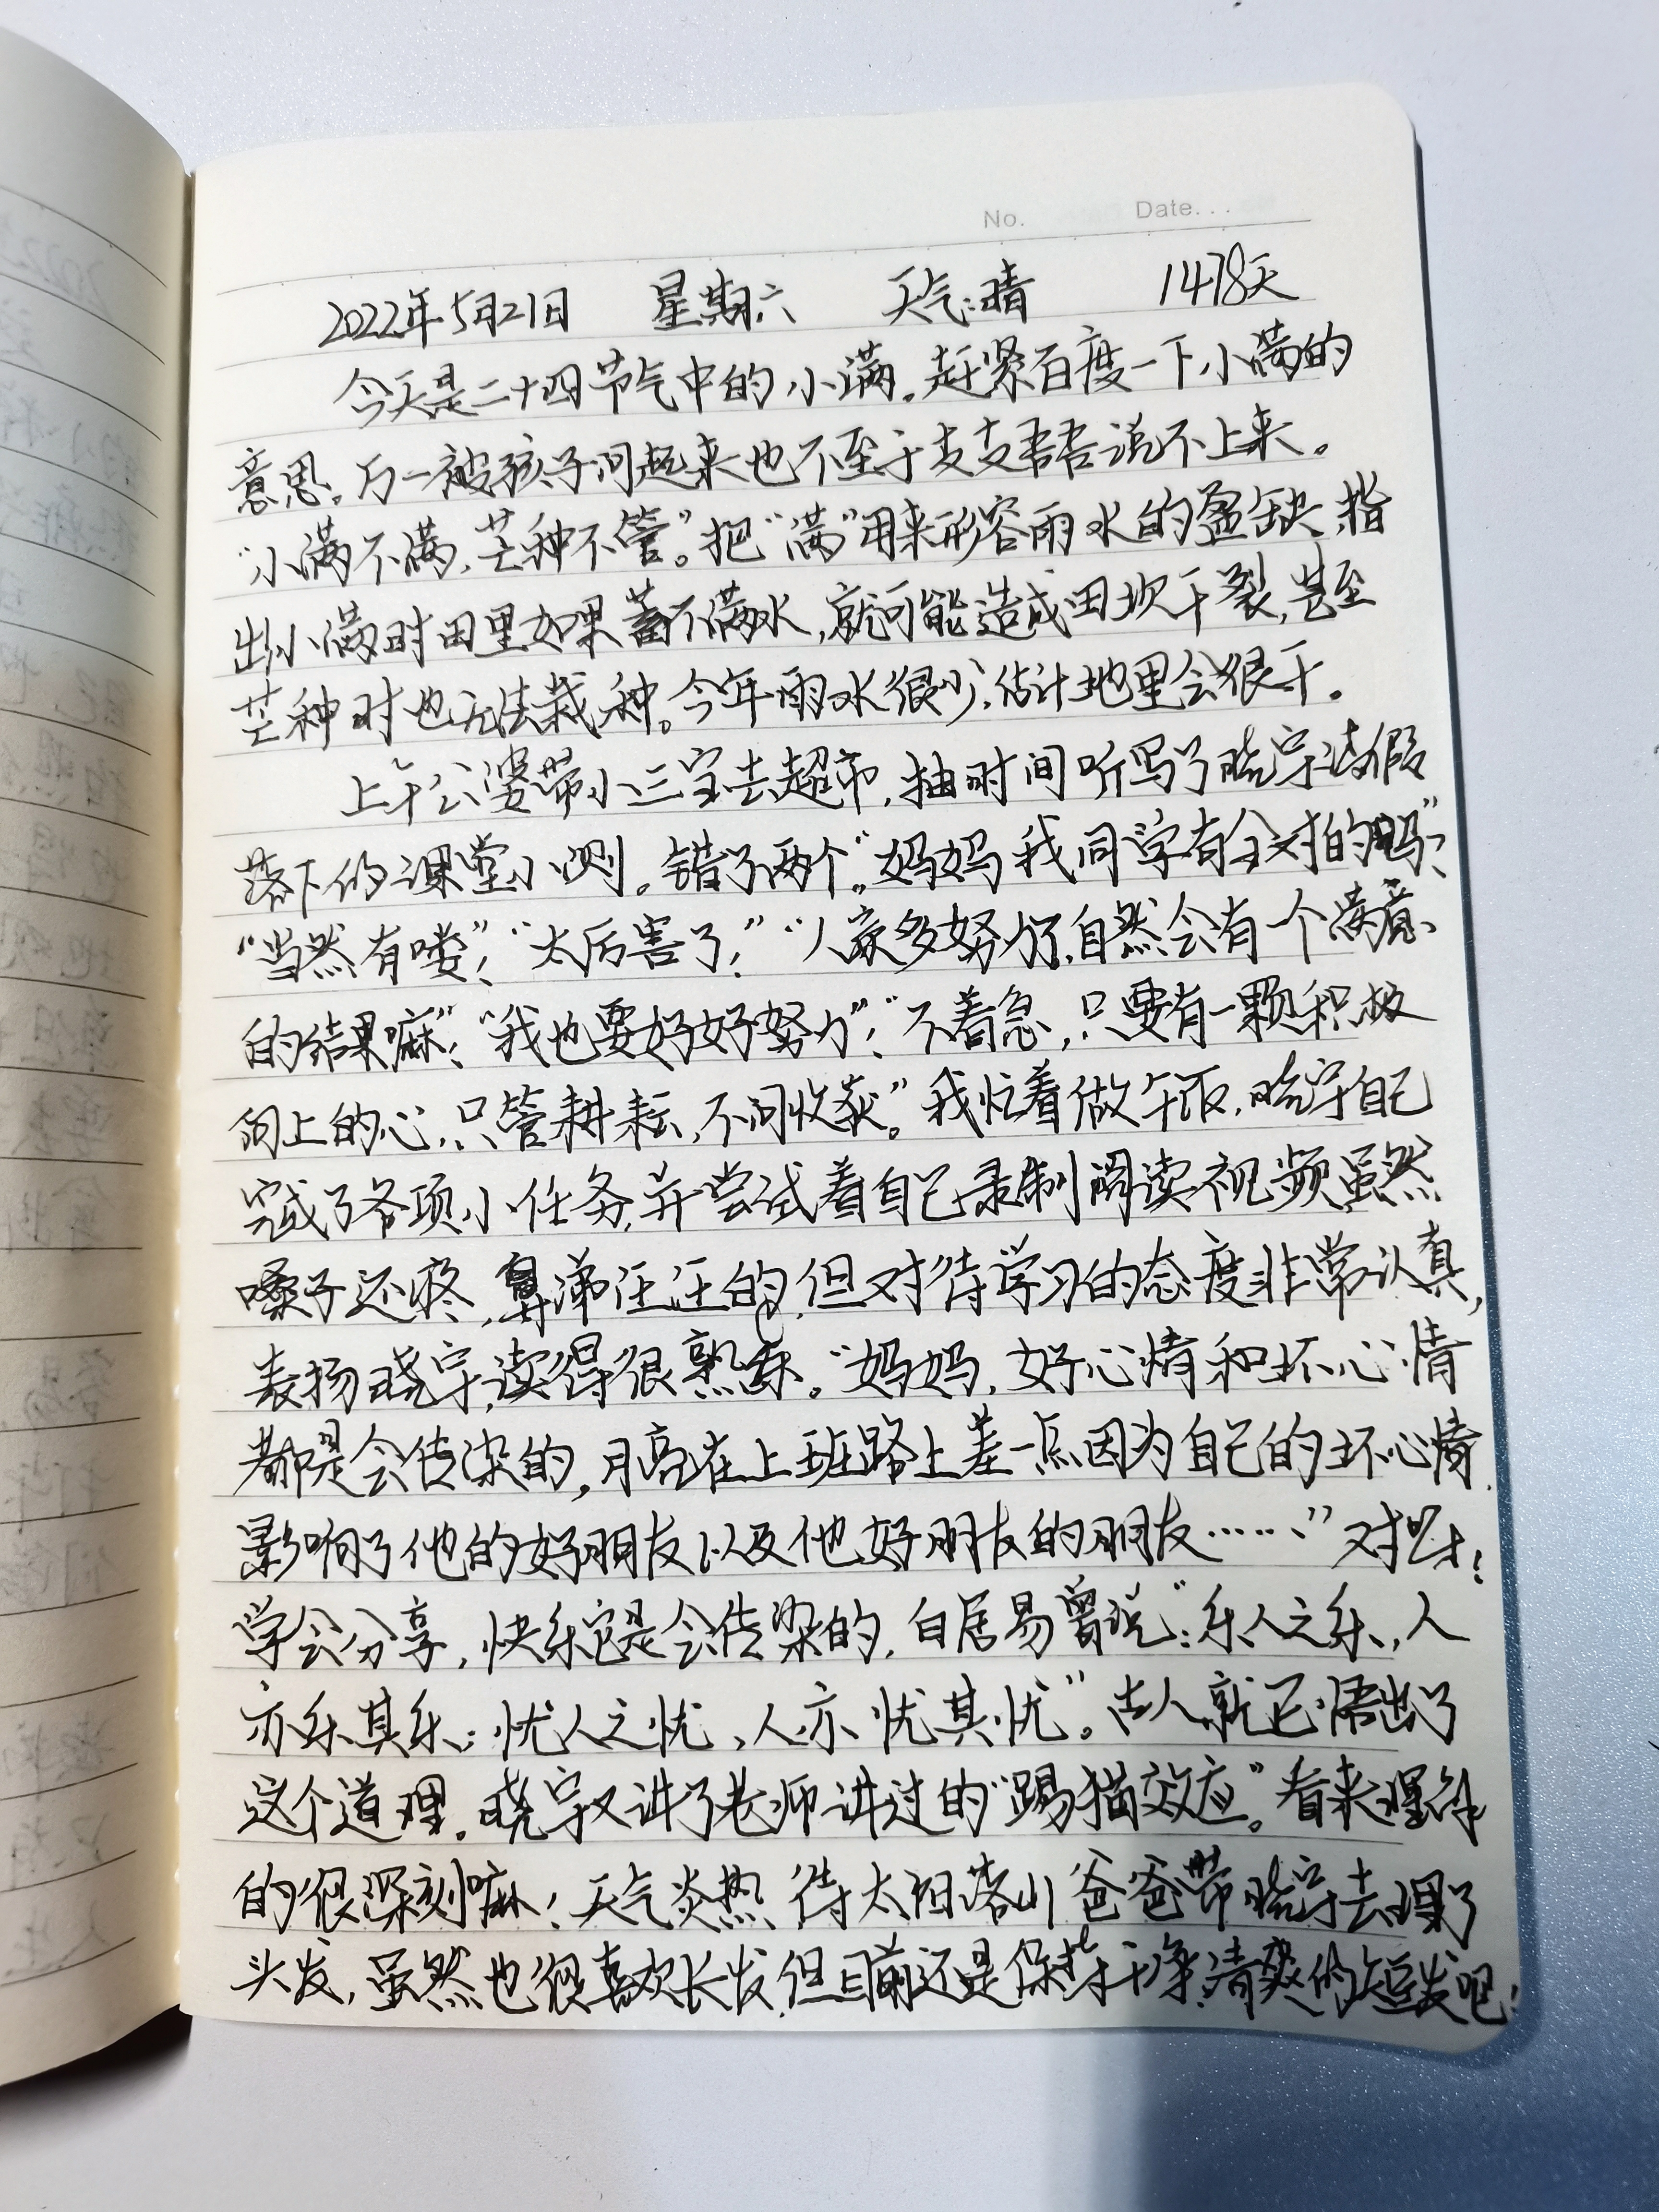 No. Date...
2022年5月21日 星期六 天气:晴 1478天
今天是二十四节气中的小满。赶紧百度一下小满的
意思。万一被孩子问起来也不至于支支吾吾说不上来。
“小满不满,芒种不管”。把“满”用来形容雨水的盈缺,指
出小满时田里如果蓄不满水,就可能造成田坎干裂,甚至
芒种时也无法栽种。今年雨水很少,估计地里会很干。
上午公婆带小三宝去超市,抽时间听写了晓宇请假
落下的课堂小测。错了两个。“妈妈我同学有全对的吗?”
“当然有喽!”“太厉害了!”“人家多努力,自然会有一个满意
的结果嘛!”“我也要好好努力!”“不着急,只要有一颗积极
向上的心,只管耕耘,不问收获。”我忙着做午饭,晓宇自己
完成了各项小任务,并尝试着自己录制阅读视频虽然
嗓子还疼,鼻涕汪汪的,但对待学习的态度非常认真,
表扬晓宇,读得很熟练。“妈妈,好心情和坏心情
都是会传染的,月亮在上班路上差一点因为自己的坏心情
影响了他的好朋友以及他好朋友的朋友……”对呀!
学会分享,快乐是会传染的,白居易曾说:“乐人之乐,人
亦乐其乐;忧人之忧,人亦忧其忧”。古人就已悟出了
这个道理。晓宇又讲了老师讲过的“踢猫效应”。看来理解
的很深刻嘛!天气炎热,待太阳落山爸爸带晓宇去理了
头发,虽然也很喜欢长发,但目前还是保持干净清爽的短发吧!